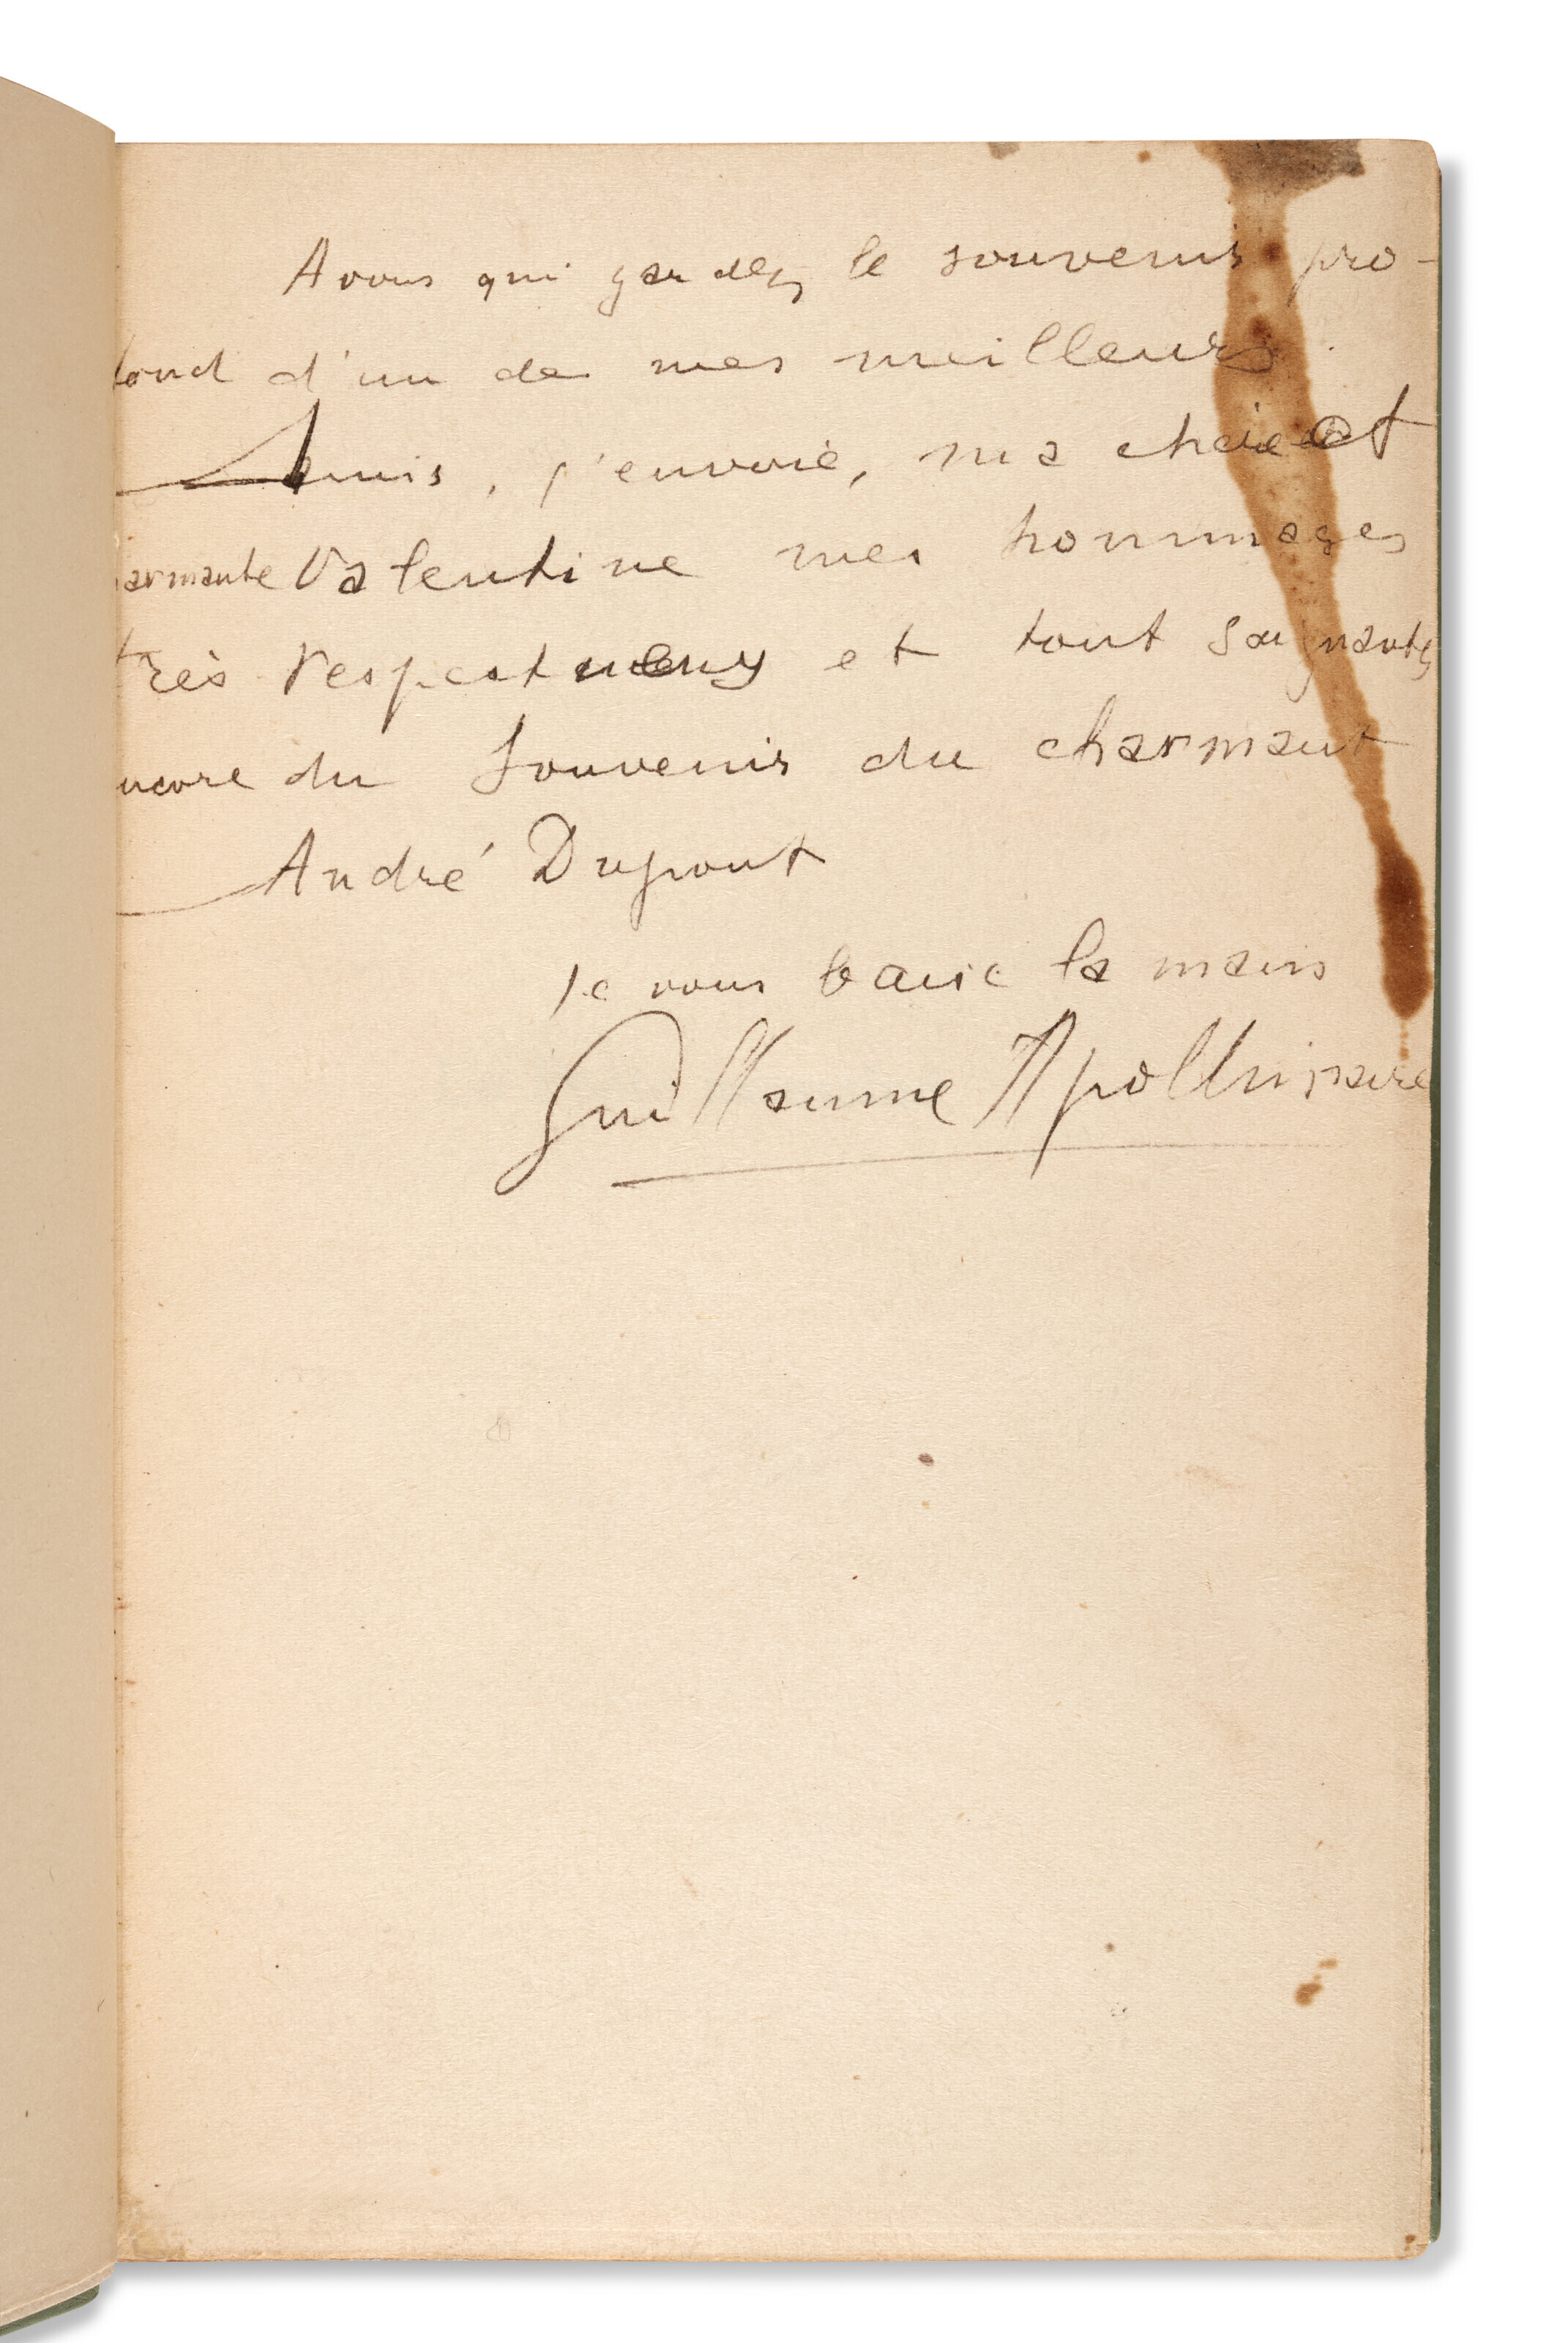 A vous qui gardez le souvenir pro-
fond d'un de mes meilleurs
Amis, j'envoie, ma chère et
armante Valentine mes hommages
très respectueux et tout saignants
ncore du Souvenir du charmant
André Dupont
Je vous baise la main
Guillaume Apollinaire